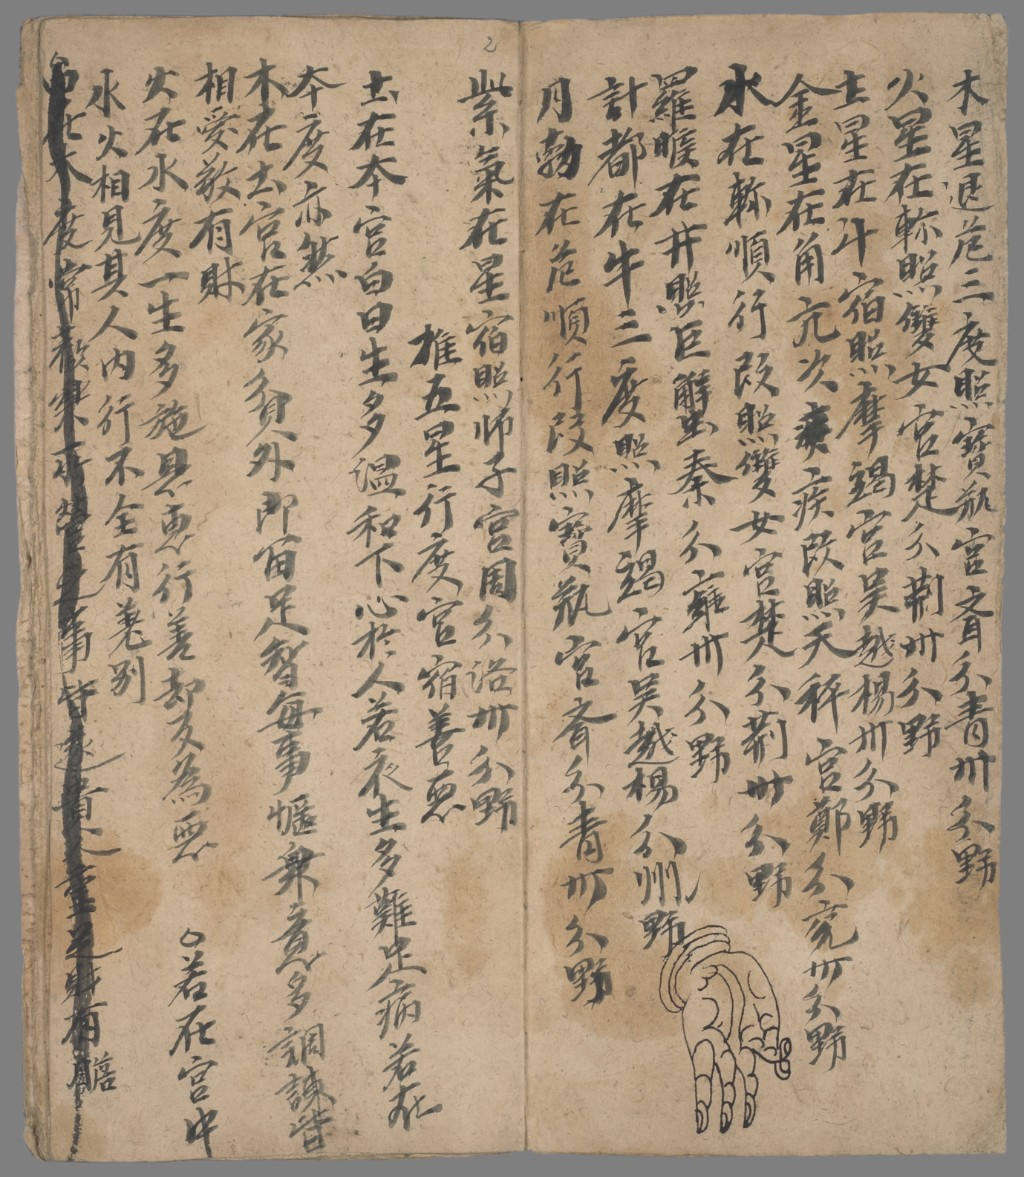 木星退危三度照寶瓶宮齊分青州分野
火星在軫照雙女宮楚分荊州分野
土星在斗宿照摩竭宮吳越楊州分野
金星在角亢次疾疾改照天秤宮鄭分兗州分野
水在軫順行改照雙女宮楚分荊州分野
羅睺在井照巨蟹秦分雍州分野
計都在牛三度照摩竭宮吳越楊分州野
月勃在危順行改照寶瓶宮齊分青州分野
紫氣在星宿照師子宮周分洛州分野
推五星行度宮宿善惡
土在本宮白日生多溫和下心於人若衣生多難足病若在
本度亦然
木在土宮在家貧外即富足智每事愜眾意多調諫皆
相愛敬有財
火在水度一生多施恩惠行善却交為惡
○若在宮中
水火相見其人內行不全有差別
木度常歡樂所皆有膽